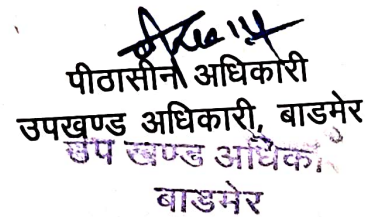 पीठासीन अधिकारी
उपखण्ड अधिकारी, बाडमेर
उप खण्ड अधिका
बाडमेर